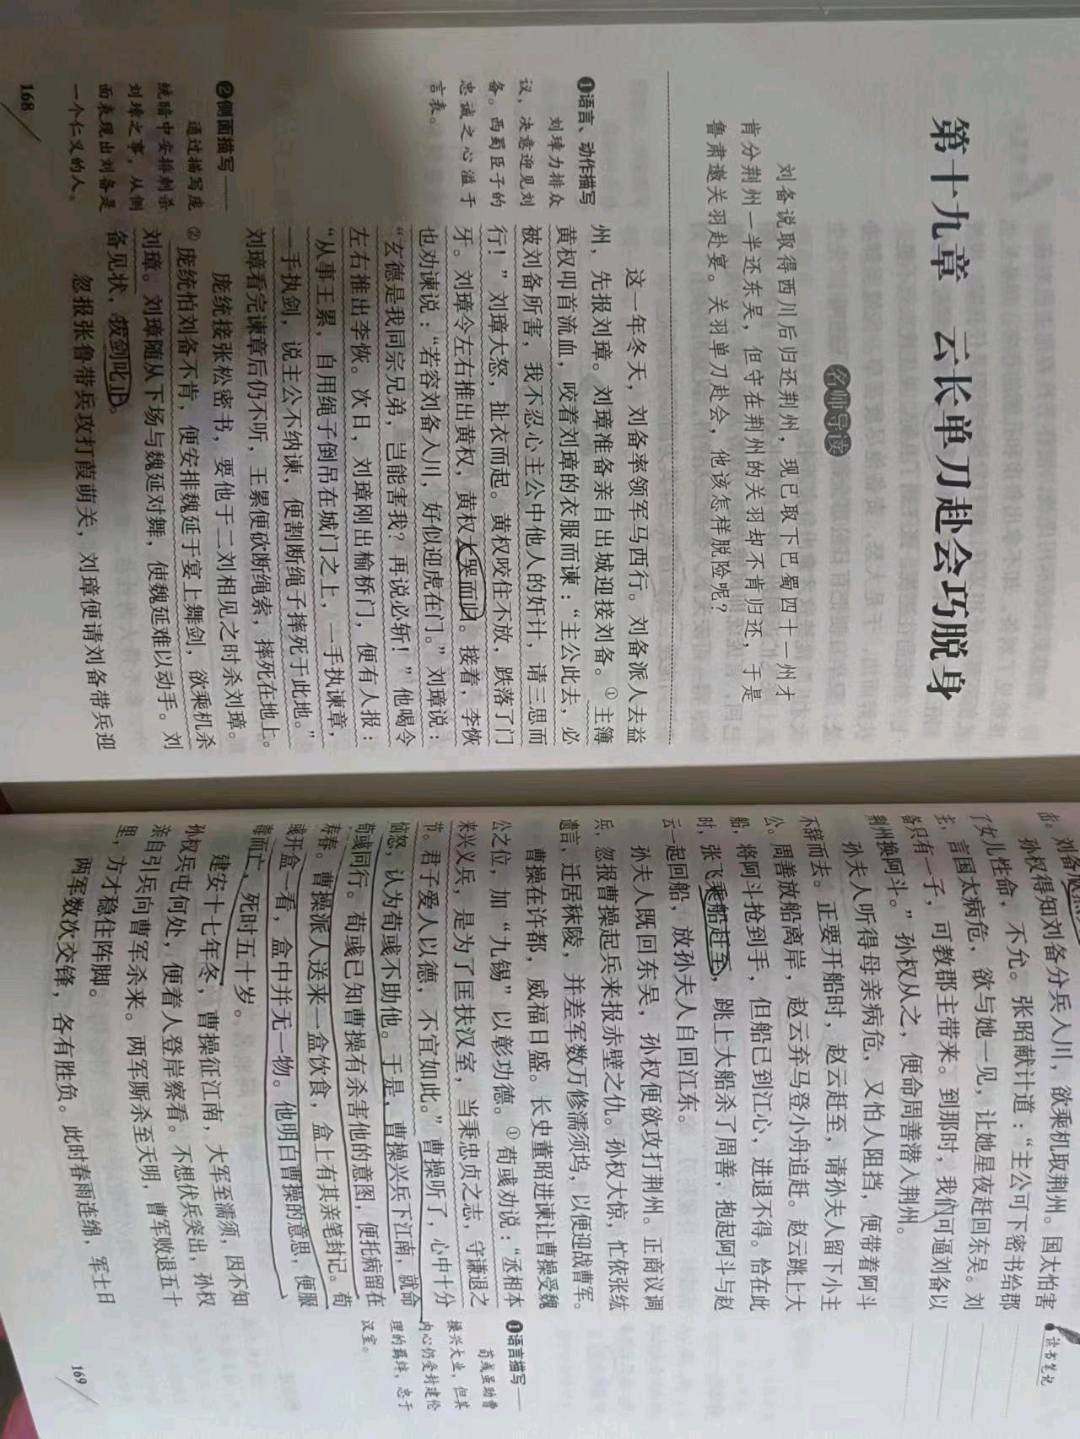 第十九章 云长单刀赴会巧脱身
名师导读
刘备说取得西川后归还荆州，现已取下巴蜀四十一州才
肯分荆州一半还东吴，但守在荆州的关羽却不肯归还，于是
鲁肃邀关羽赴宴。关羽单刀赴会，他该怎样脱险呢？
这一年冬天，刘备率领军马西行。刘备派人去益
州，先报刘璋。刘璋准备亲自出城迎接刘备。①主簿
黄权叩首流血，咬着刘璋的衣服而谏：“主公此去，必
被刘备所害，我不忍心主公中他人的奸计，请三思而
行！”刘璋大怒，扯衣而起。黄权咬住不放，跌落了门
牙。刘璋令左右推出黄权，黄权大哭而出。接着，李恢
也劝谏说：“若容刘备入川，好似迎虎在门。”刘璋说：
“玄德是我同宗兄弟，岂能害我？再说必斩！”他喝令
左右推出李恢。次日，刘璋刚出榆桥门，便有人报：
“从事王累，自用绳子倒吊在城门之上，一手执谏章，
一手执剑，说主公不纳谏，便割断绳子摔死于此地。”
刘璋看完谏章后仍不听，王累便砍断绳索，摔死在地上。
庞统接张松密书，要他于二刘相见之时杀刘璋。
②庞统怕刘备不肯，便安排魏延于宴上舞剑，欲乘机杀
刘璋。刘璋随从下场与魏延对舞，使魏延难以动手。刘
备见状，拔剑叱止。
忽报张鲁带兵攻打葭萌关，刘璋便请刘备带兵迎
❶语言、动作描写
刘璋力排众
议，决意迎见刘
备。西蜀臣子的
忠诚之心溢于
言表。
❷侧面描写——
通过描写庞
统暗中安排刺杀
刘璋之事，从侧
面表现出刘备是
一个仁义的人。
168
读书笔记
击。刘备
孙权得知刘备分兵入川，欲乘机取荆州。国太怕害
了女儿性命，不允。张昭献计道：“主公可下密书给郡
主，言国太病危，欲与她一见，让她星夜赶回东吴。刘
备只有一子，可教郡主带来。到那时，我们可逼刘备以
荆州换阿斗。”孙权从之，便命周善潜入荆州。
孙夫人听得母亲病危，又怕人阻挡，便带着阿斗
不辞而去。正要开船时，赵云赶至，请孙夫人留下小主
公。周善放船离岸，赵云弃马登小舟追赶。赵云跳上大
船，将阿斗抢到手，但船已到江心，进退不得。恰在此
时，张飞乘船赶至，跳上大船杀了周善，抱起阿斗与赵
云一起回船，放孙夫人自回江东。
孙夫人既回东吴，孙权便欲攻打荆州。正商议调
兵，忽报曹操起兵来报赤壁之仇。孙权大惊，忙依张纮
遗言，迁居秣陵，并差军数万修濡须坞，以便迎战曹军。
曹操在许都，威福日盛。长史董昭进谏让曹操受魏
公之位，加“九锡”以彰功德。①荀彧劝说：“丞相本
来兴义兵，是为了匡扶汉室，当秉忠贞之志，守谦退之
节。君子爱人以德，不宜如此。”曹操听了，心中十分
恼怒，认为荀彧不助他。于是，曹操兴兵下江南，就命
荀彧同行。荀彧已知曹操有杀害他的意图，便托病留在
寿春。曹操派人送来一盒饮食，盒上有其亲笔封记。荀
彧开盒一看，盒中并无一物。他明白曹操的意思，便服
毒而亡，死时五十岁。
建安十七年冬，曹操征江南，大军至濡须，因不知
孙权兵屯何处，便着人登岸察看。不想伏兵突出，孙权
亲自引兵向曹军杀来。两军厮杀至天明，曹军败退五十
里，方才稳住阵脚。
两军数次交锋，各有胜负。此时春雨连绵，军士日
❶语言描写——
荀彧虽助曹
操兴大业，但其
内心仍受封建伦
理的羁绊，忠于
汉室。
169